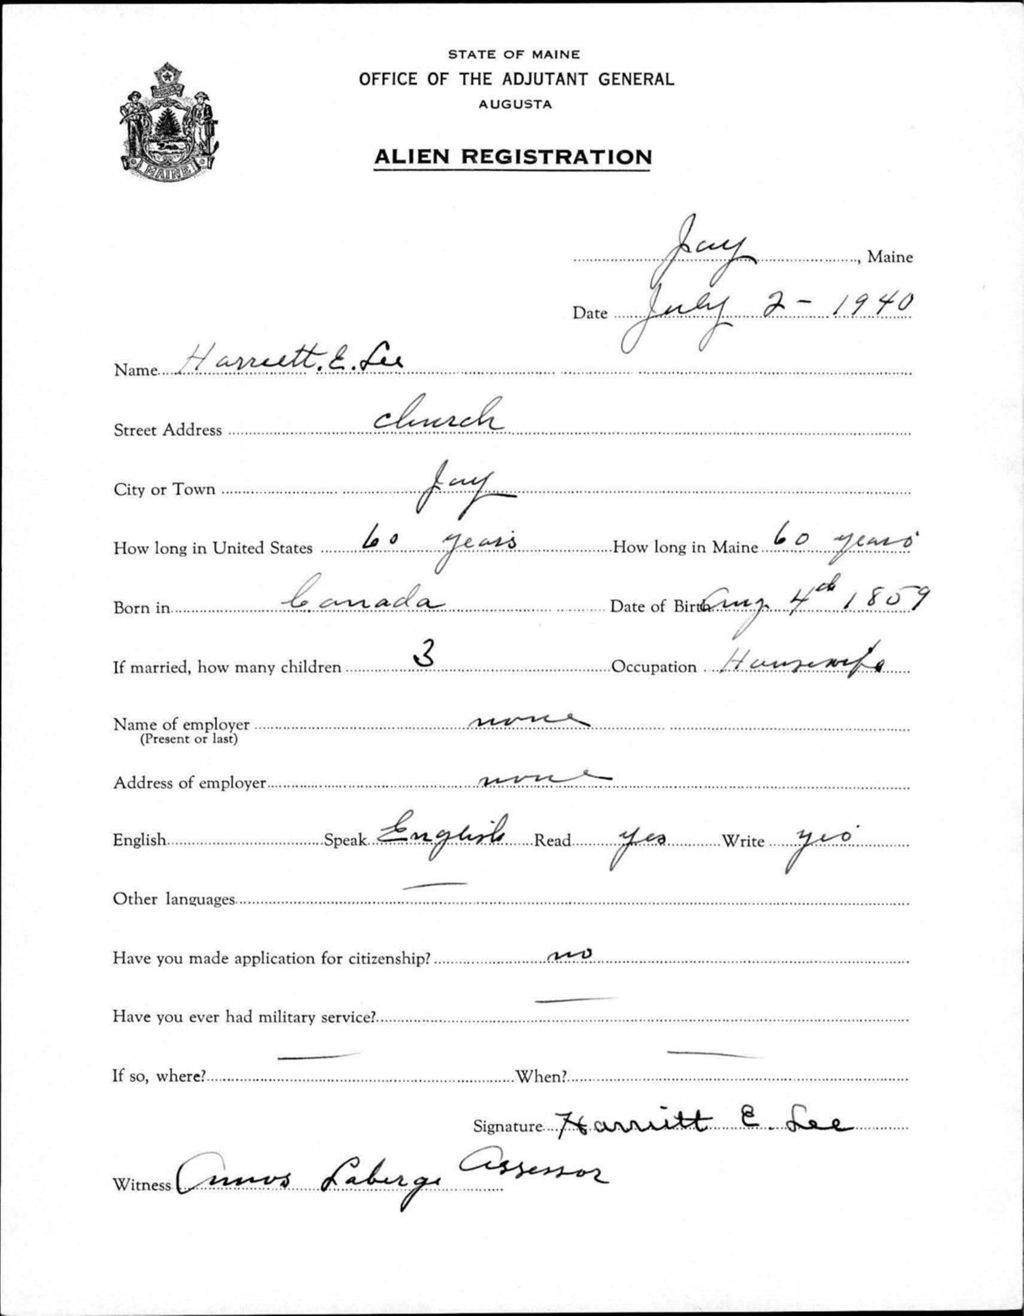 STATE OF MAINE
OFFICE OF THE ADJUTANT GENERAL
AUGUSTA
ALIEN REGISTRATION
MAINE
Jay, Maine
Date July 2 - 1940
Name Harriett. E. Lee
Street Address church
City or Town Jay
How long in United States 60 years How long in Maine 60 years
Born in Canada Date of Birth Aug. 4th 1859
If married, how many children 3 Occupation Housewife
Name of employer none
(Present or last)
Address of employer none
English Speak English Read yes Write yes
Other languages —
Have you made application for citizenship? no
Have you ever had military service? —
If so, where? — When? —
Signature Harriett E. Lee
Witness Laberge Assessor